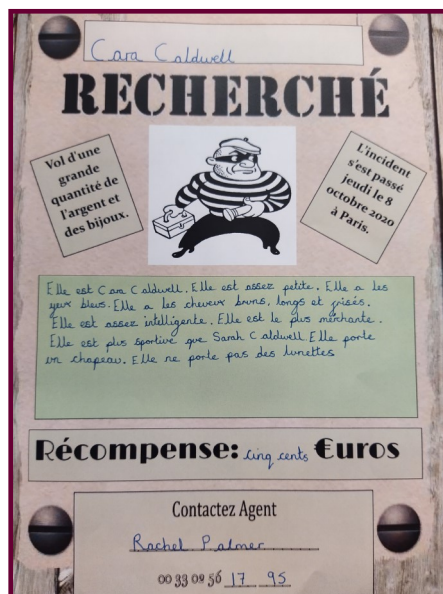 Cara Caldwell
RECHERCHÉ
Vol d'une
grande
quantité de
l'argent et
des bijoux.
L'incident
s'est passé
jeudi le 8
octobre 2020
à Paris.
Elle est Cara Caldwell. Elle est assez petite. Elle a les
yeux bleus. Elle a les cheveux bruns, longs et frisés.
Elle est assez intelligente. Elle est le plus méchante.
Elle est plus sportive que Sarah Caldwell. Elle porte
un chapeau. Elle ne porte pas des lunettes
Récompense: cinq cents €uros
Contactez Agent
Rachel Palmer
00 33 09 56 17 95